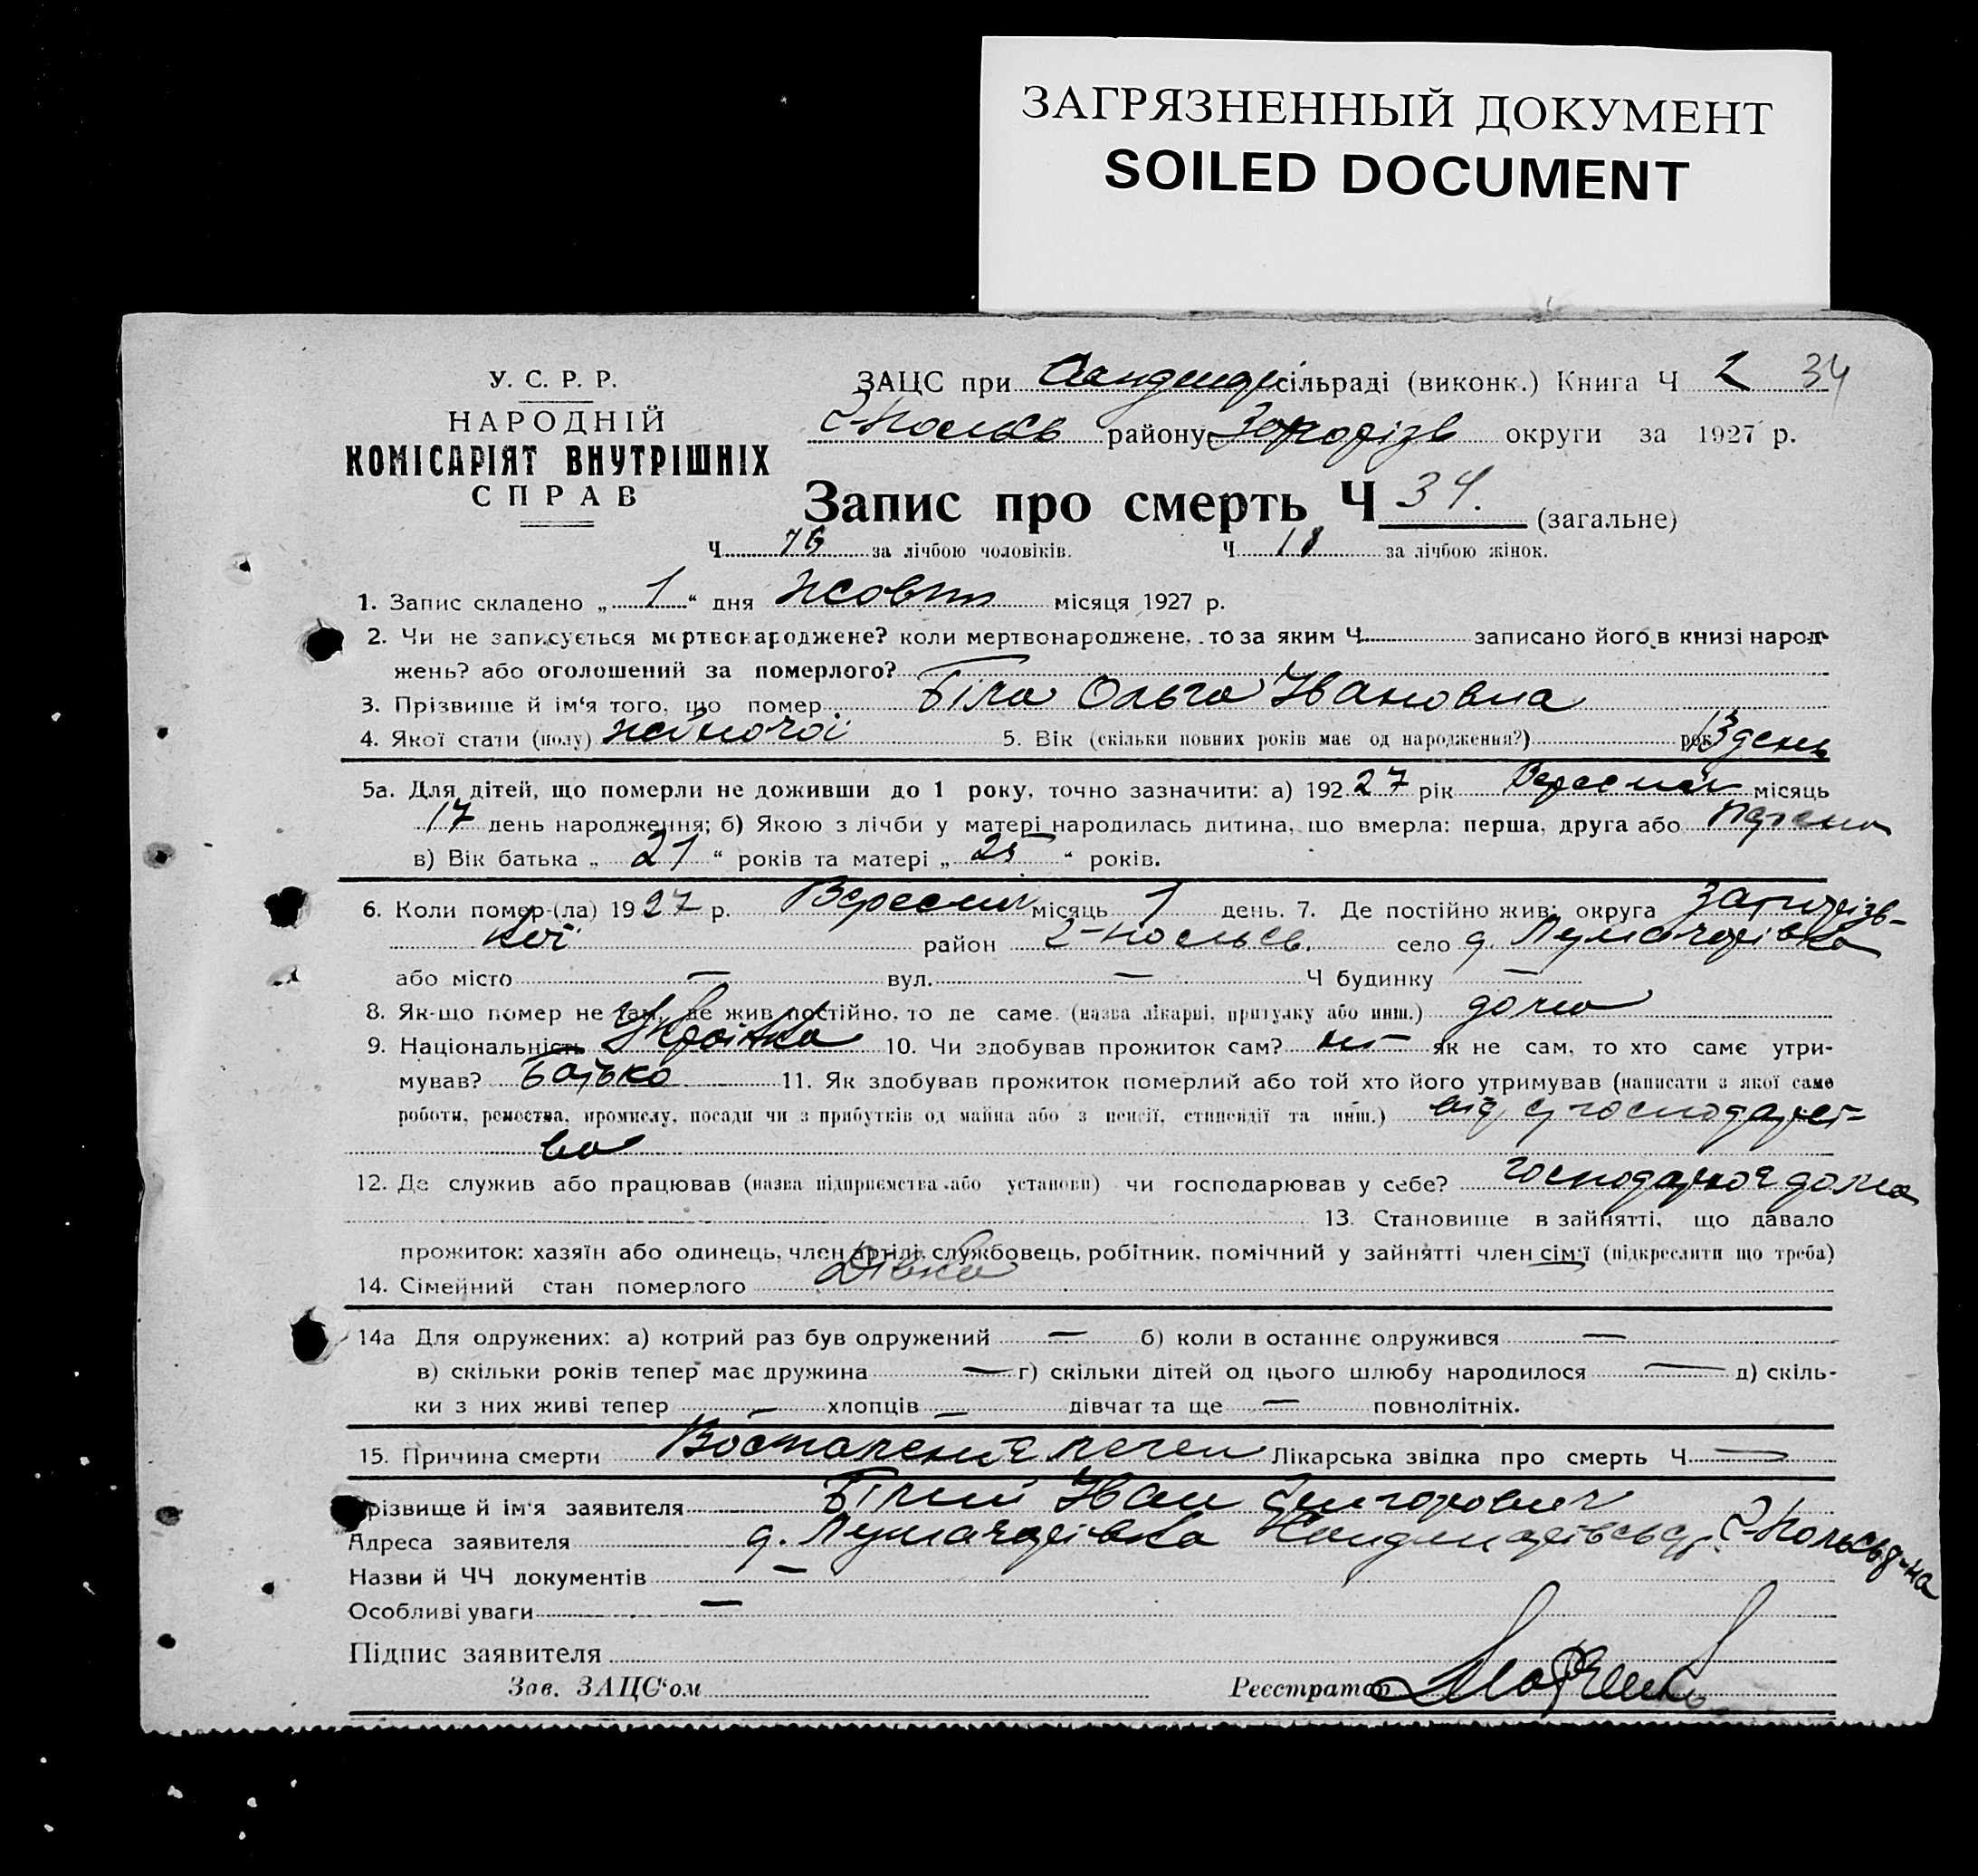 ЗАГРЯЗНЕННЫЙ ДОКУМЕНТ
SOILED DOCUMENT
У. С. Р. Р.
НАРОДНІЙ
КОМІСАРІЯТ ВНУТРІШНІХ
СПРАВ
ЗАЦС при сільраді (виконк.) Книга Ч 2 34
району округи за 1927 р.
Запис про смерть Ч 34. (загальне)
Ч 16 за лічбою чоловіків. Ч 18 за лічбою жінок.
1. Запис складено „ 1 “ дня Жовтн місяця 1927 р.
2. Чи не записується мертвонароджене? коли мертвонароджене, то за яким Ч записано його в книзі народ-
жень? або оголошений за померлого?
3. Прізвище й ім‘я того, що помер Біла Ольга Ивановна
4. Якої стати (полу) жіночої 5. Вік (скільки повних років має од народження?) рок 13 день
5а. Для дітей, що померли не доживши до 1 року, точно зазначити: а) 192 27 рік Вересня місяць
17 день народження; б) Якою з лічби у матері народилась дитина, що вмерла: перша, друга або
в) Вік батька „ 21 “ років та матері „ 25 “ років.
6. Коли помер-(ла) 19 27 р. Вересня місяць 1 день. 7. Де постійно жив: округа Запорізь-
кої район 2-Кольсь. село д.
або місто — вул. — Ч будинку —
8. Як-що помер не там, де жив постійно, то де саме (назва лікарні, притулку або инш.) дома
9. Національність Украінка 10. Чи здобував прожиток сам? ні як не сам, то хто саме утри-
мував? Батько 11. Як здобував прожиток померлий або той хто його утримував (написати з якої саме
роботи, ремества, промислу, посади чи з прибутків од майна або з пенсії, стипендії та инш.) від с господарст-
ва
12. Де служив або працював (назва підприємства або установи) чи господарював у себе? господарює дома
13. Становище в зайнятті, що давало
прожиток: хазяїн або одинець, член артілі, службовець, робітник, помічний у зайнятті член сім‘ї (підкреслити що треба)
14. Сімейний стан померлого Дівка
14а Для одружених: а) котрий раз був одружений — б) коли в останнє одружився —
в) скільки років тепер має дружина — г) скільки дітей од цього шлюбу народилося — д) скіль-
ки з них живі тепер — хлопців — дівчат та ще — повнолітніх.
15. Причина смерти Воспаление легеп Лікарська звідка про смерть Ч —
Прізвище й ім‘я заявителя Білий Иван Григорович
Адреса заявителя д.
Назви й ЧЧ документів —
Особливі уваги —
Підпис заявителя
Зав. ЗАЦС‘ом Реєстратор